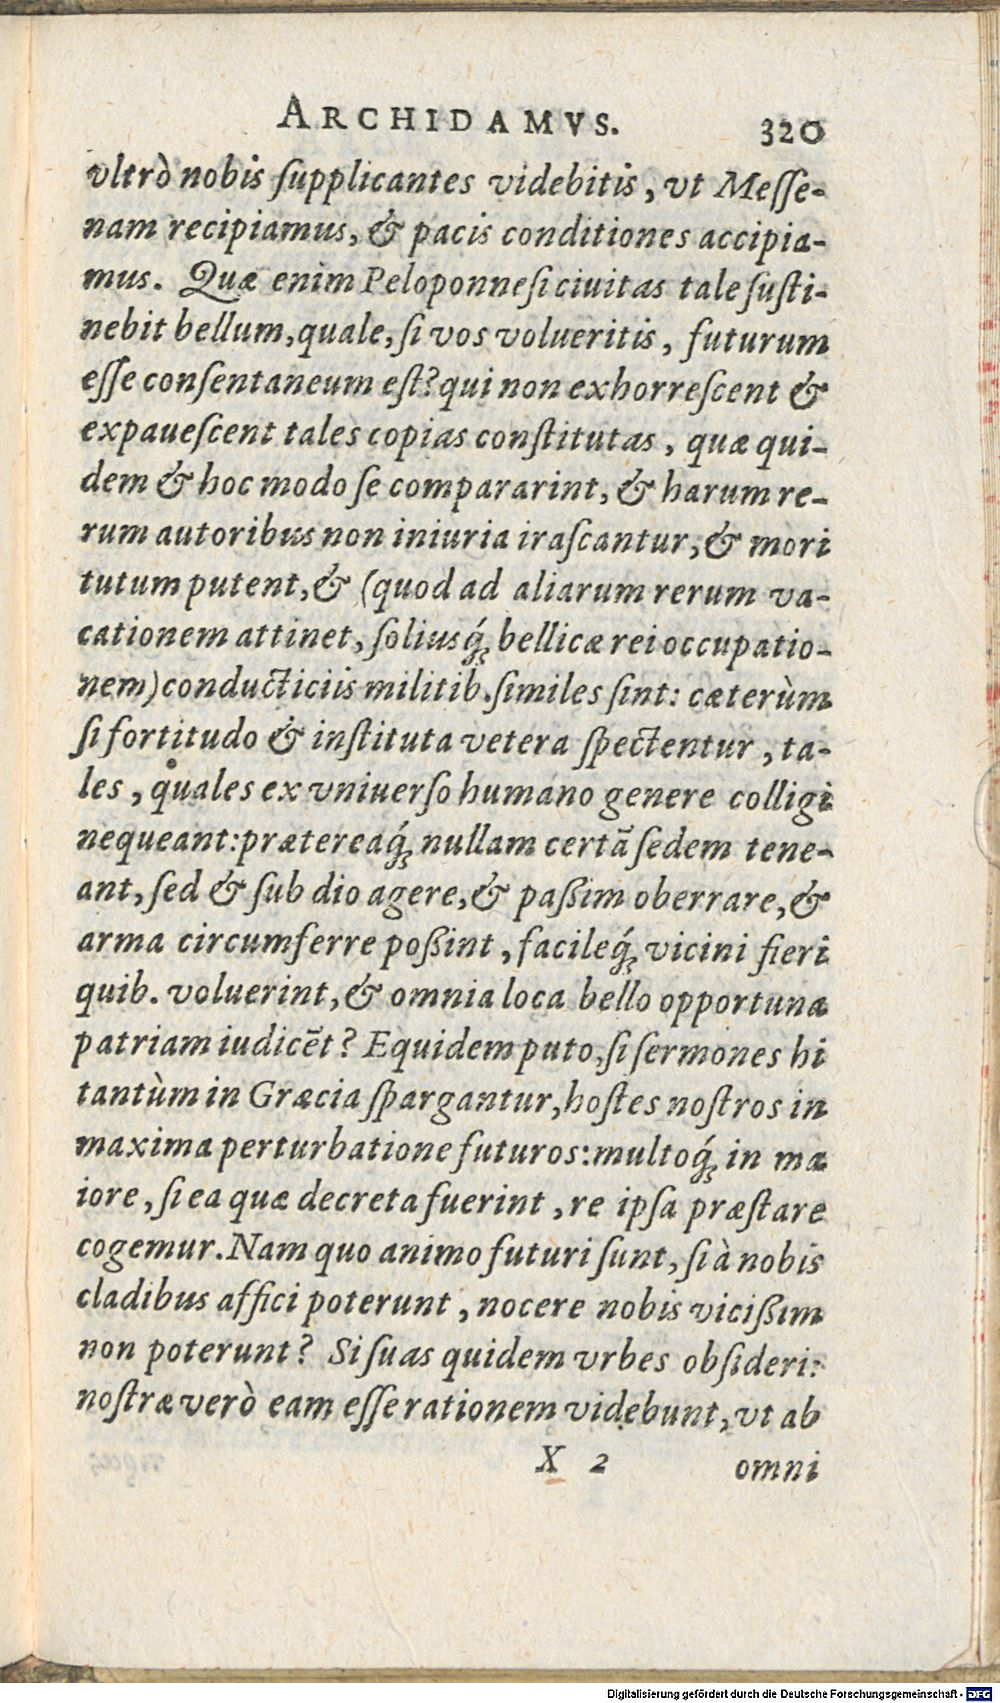 ARCHIDAMVS. 320
vltrò nobis ſupplicantes videbitis, vt Meſſe-
nam recipiamus, & pacis conditiones accipia-
mus. Quæ enim Peloponneſi ciuitas tale ſuſti-
nebit bellum, quale, ſi vos volueritis, futurum
eſſe conſentaneum eſt? qui non exhorreſcent &
expaueſcent tales copias conſtitutas, quæ qui-
dem & hoc modo ſe compararint, & harum re-
rum autoribus non iniuria iraſcantur, & mori
tutum putent, & (quod ad aliarum rerum va-
cationem attinet, ſoliusq́; bellicæ rei occupatio-
nem) conducticiis militib. ſimiles ſint: cæterùm
ſi fortitudo & inſtituta vetera ſpectentur, ta-
les, quales ex vniuerſo humano genere colligi
nequeant: prætereaq́; nullam certā ſedem tene-
ant, ſed & ſub dio agere, & paßim oberrare, &
arma circumferre poßint, facileq́; vicini fieri
quib. voluerint, & omnia loca bello opportuna
patriam iudicēt? Equidem puto, ſi ſermones hi
tantùm in Græcia ſpargantur, hoſtes noſtros in
maxima perturbatione futuros: multoq́; in ma
iore, ſi ea quæ decreta fuerint, re ipſa præſtare
cogemur. Nam quo animo futuri ſunt, ſi à nobis
cladibus affici poterunt, nocere nobis vicißim
non poterunt? Si ſuas quidem vrbes obſideri:
noſtræ verò eam eſſe rationem videbunt, vt ab
X 2 omni
Digitalisierung gefördert durch die Deutsche Forschungsgemeinschaft - DFG